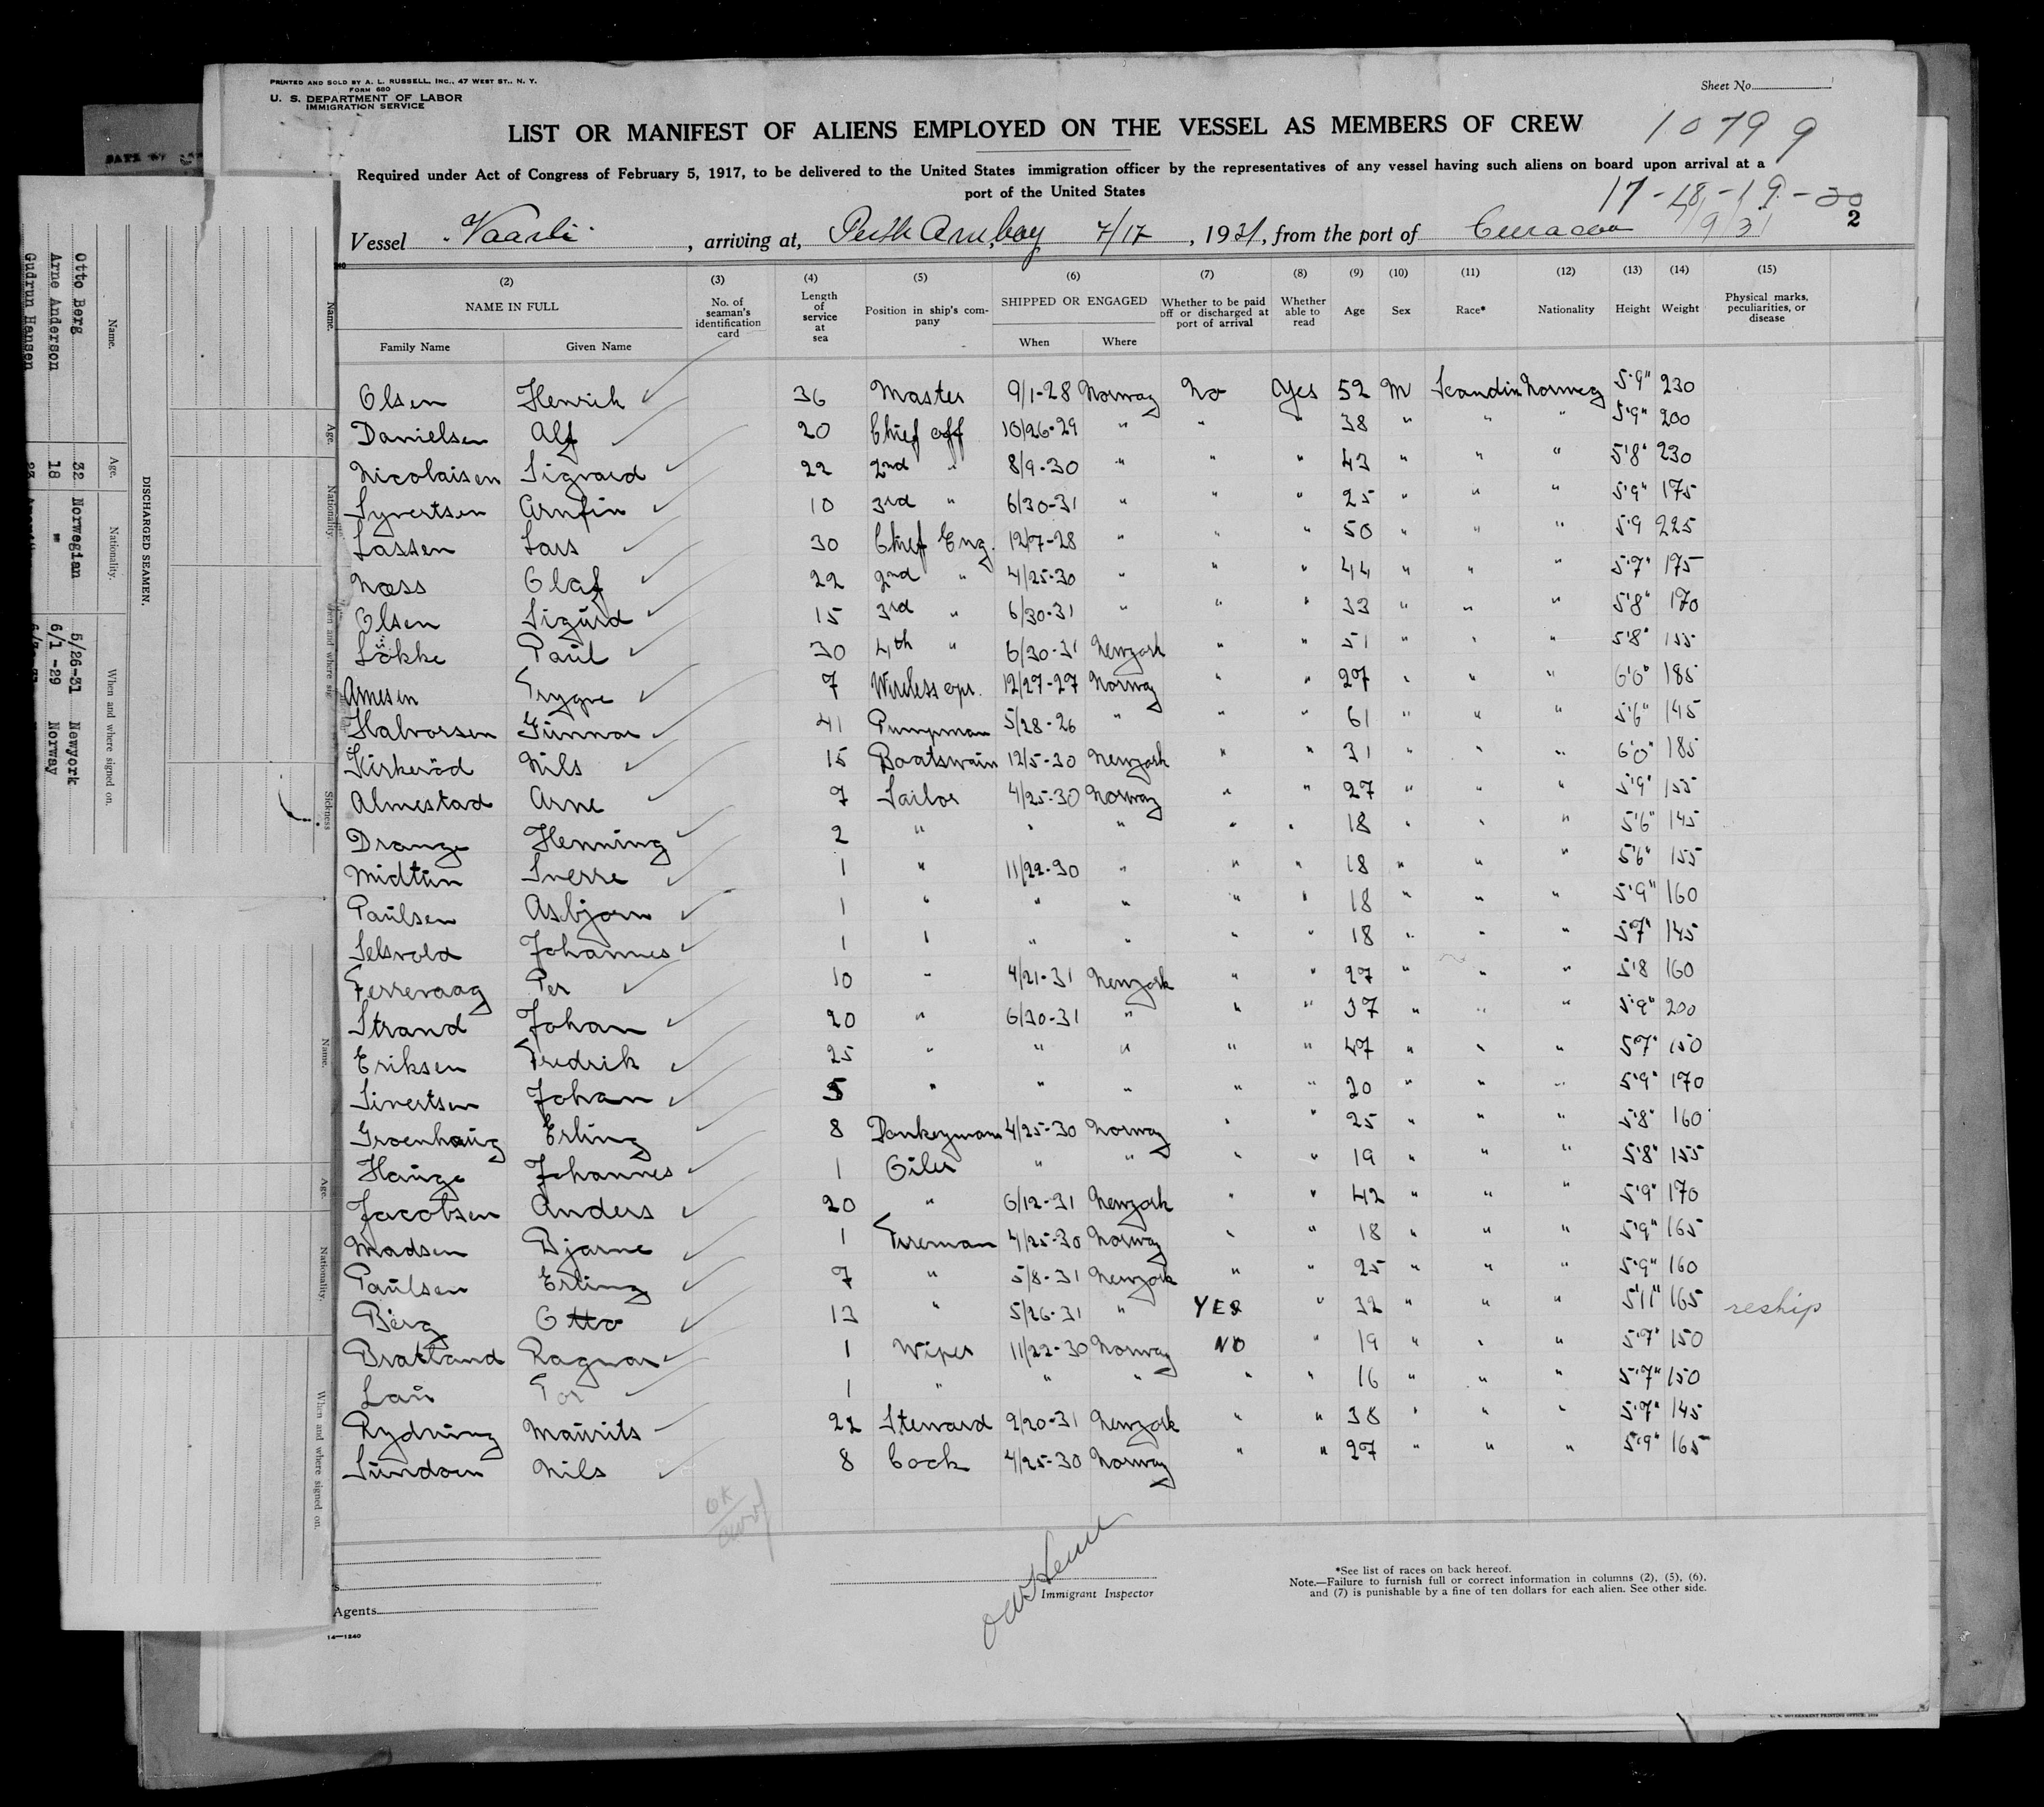 PRINTED AND SOLD BY A. L. RUSSELL, INC., 47 WEST ST., N. Y.
FORM 680
U. S. DEPARTMENT OF LABOR
IMMIGRATION SERVICE
Sheet No.
LIST OR MANIFEST OF ALIENS EMPLOYED ON THE VESSEL AS MEMBERS OF CREW
10799
Required under Act of Congress of February 5, 1917, to be delivered to the United States immigration officer by the representatives of any vessel having such aliens on board upon arrival at a
port of the United States
17-18-19-20
2
Vessel Vaarli, arriving at, Perth Amboy 7/17, 1931, from the port of Curacao 7/9/31
(2) (3) (4) (5) (6) (7) (8) (9) (10) (11) (12) (13) (14) (15)
NAME IN FULL No. of seaman's identification card Length of service at sea Position in ship's company SHIPPED OR ENGAGED Whether to be paid off or discharged at port of arrival Whether able to read Age Sex Race* Nationality Height Weight Physical marks, peculiarities, or disease
Family Name Given Name When Where
Olsen Henrik 36 Master 9/1-28 Norway No Yes 52 M Scandin Norweg 5'9" 230
Danielsen Alf 20 Chief off 10/26-29 " " " 38 " " " 5'9" 200
Nicolaisen Sigvard 22 2nd " 8/9-30 " " " 43 " " " 5'8" 230
Syvertsen Arnfin 10 3rd " 6/30-31 " " " 25 " " " 5'9" 175
Lassen Lars 30 Chief Eng. 12/7-28 " " " 50 " " " 5'9 225
Næss Olaf 22 2nd " 4/25-30 " " " 44 " " " 5'7" 175
Olsen Sigurd 15 3rd " 6/30-31 " " " 33 " " " 5'8" 170
Lökke Paul 30 4th " 6/30-31 Newyork " " 51 " " " 5'8" 155
Arnesen Trygve 7 Wireless opr. 12/27-27 Norway " " 27 " " " 6'0" 185
Halvorsen Gunnar 41 Pumpman 5/28-26 " " " 61 " " " 5'6" 145
Kirkeröd Nils 15 Boatswain 12/5-30 Newyork " " 31 " " " 6'0" 185
Almestad Arne 7 Sailor 4/25-30 Norway " " 27 " " " 5'9" 155
Drange Henning 2 " " " " " 18 " " " 5'6" 145
Midtun Sverre 1 " 11/22-30 " " " 18 " " " 5'6" 155
Paulsen Asbjorn 1 " " " " " 18 " " " 5'9" 160
Selsvold Johannes 1 " " " " " 18 " " " 5'7" 145
Ferrevaag Per 10 " 4/21-31 Newyork " " 27 " " " 5'8 160
Strand Johan 20 " 6/30-31 " " " 37 " " " 5'9" 200
Eriksen Fredrik 25 " " " " " 47 " " " 5'7" 150
Sivertsen Johan 5 " " " " " 20 " " " 5'9" 170
Groenhaug Erling 8 Donkeyman 4/25-30 Norway " " 25 " " " 5'8" 160
Hauge Johannes 1 Oiler " " " " 19 " " " 5'8" 155
Jacobsen Anders 20 " 6/12-31 Newyork " " 42 " " " 5'9" 170
Madsen Bjarne 1 Fireman 4/25-30 Norway " " 18 " " " 5'9" 165
Paulsen Erling 7 " 5/8-31 Newyork " " 25 " " " 5'9" 160
Berg Otto 13 " 5/26-31 " YES " 32 " " " 5'11" 165 reship
Bratland Ragnar 1 Wiper 11/22-30 Norway NO " 19 " " " 5'7" 150
Lau Tor 1 " " " " " 16 " " " 5'7" 150
Rydning Maurits 22 Steward 2/20-31 Newyork " " 38 " " " 5'7" 145
Sundoen Nils 8 Cook 4/25-30 Norway " " 27 " " " 5'9" 165
OK
Immigrant Inspector
*See list of races on back hereof.
Note.—Failure to furnish full or correct information in columns (2), (5), (6),
and (7) is punishable by a fine of ten dollars for each alien. See other side.
Agents
14—1240
U. S. GOVERNMENT PRINTING OFFICE
DISCHARGED SEAMEN.
Name. Age. Nationality. When and where signed on.
Otto Berg 32 Norwegian 5/26-31 Newyork
Arne Anderson 18 " 6/1 -29 Norway
Gudrun Hansen
Name. Age. Nationality. When and where sig Sickness
Name. Age. Nationality. When and where signed on.